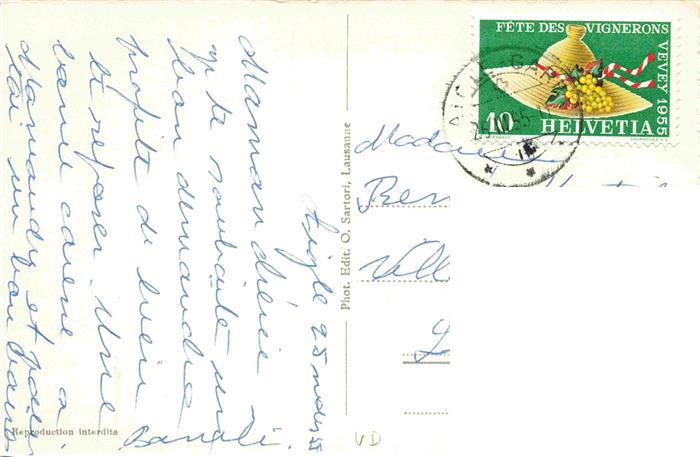 FÊTE DES VIGNERONS
VEVEY 1955
10 HELVETIA
COURVOISIER S.A.
AIGLE GARE
Madame
Ren
Vill
L
Phot. Edit. O. Sartori, Lausanne
Aigle 25 mars 55
Maman chérie
je te souhaite un
bon dimanche
profite de bien
te reposer. Une
bonne caresse à
et
toi un bon
Reproduction interdite
VD